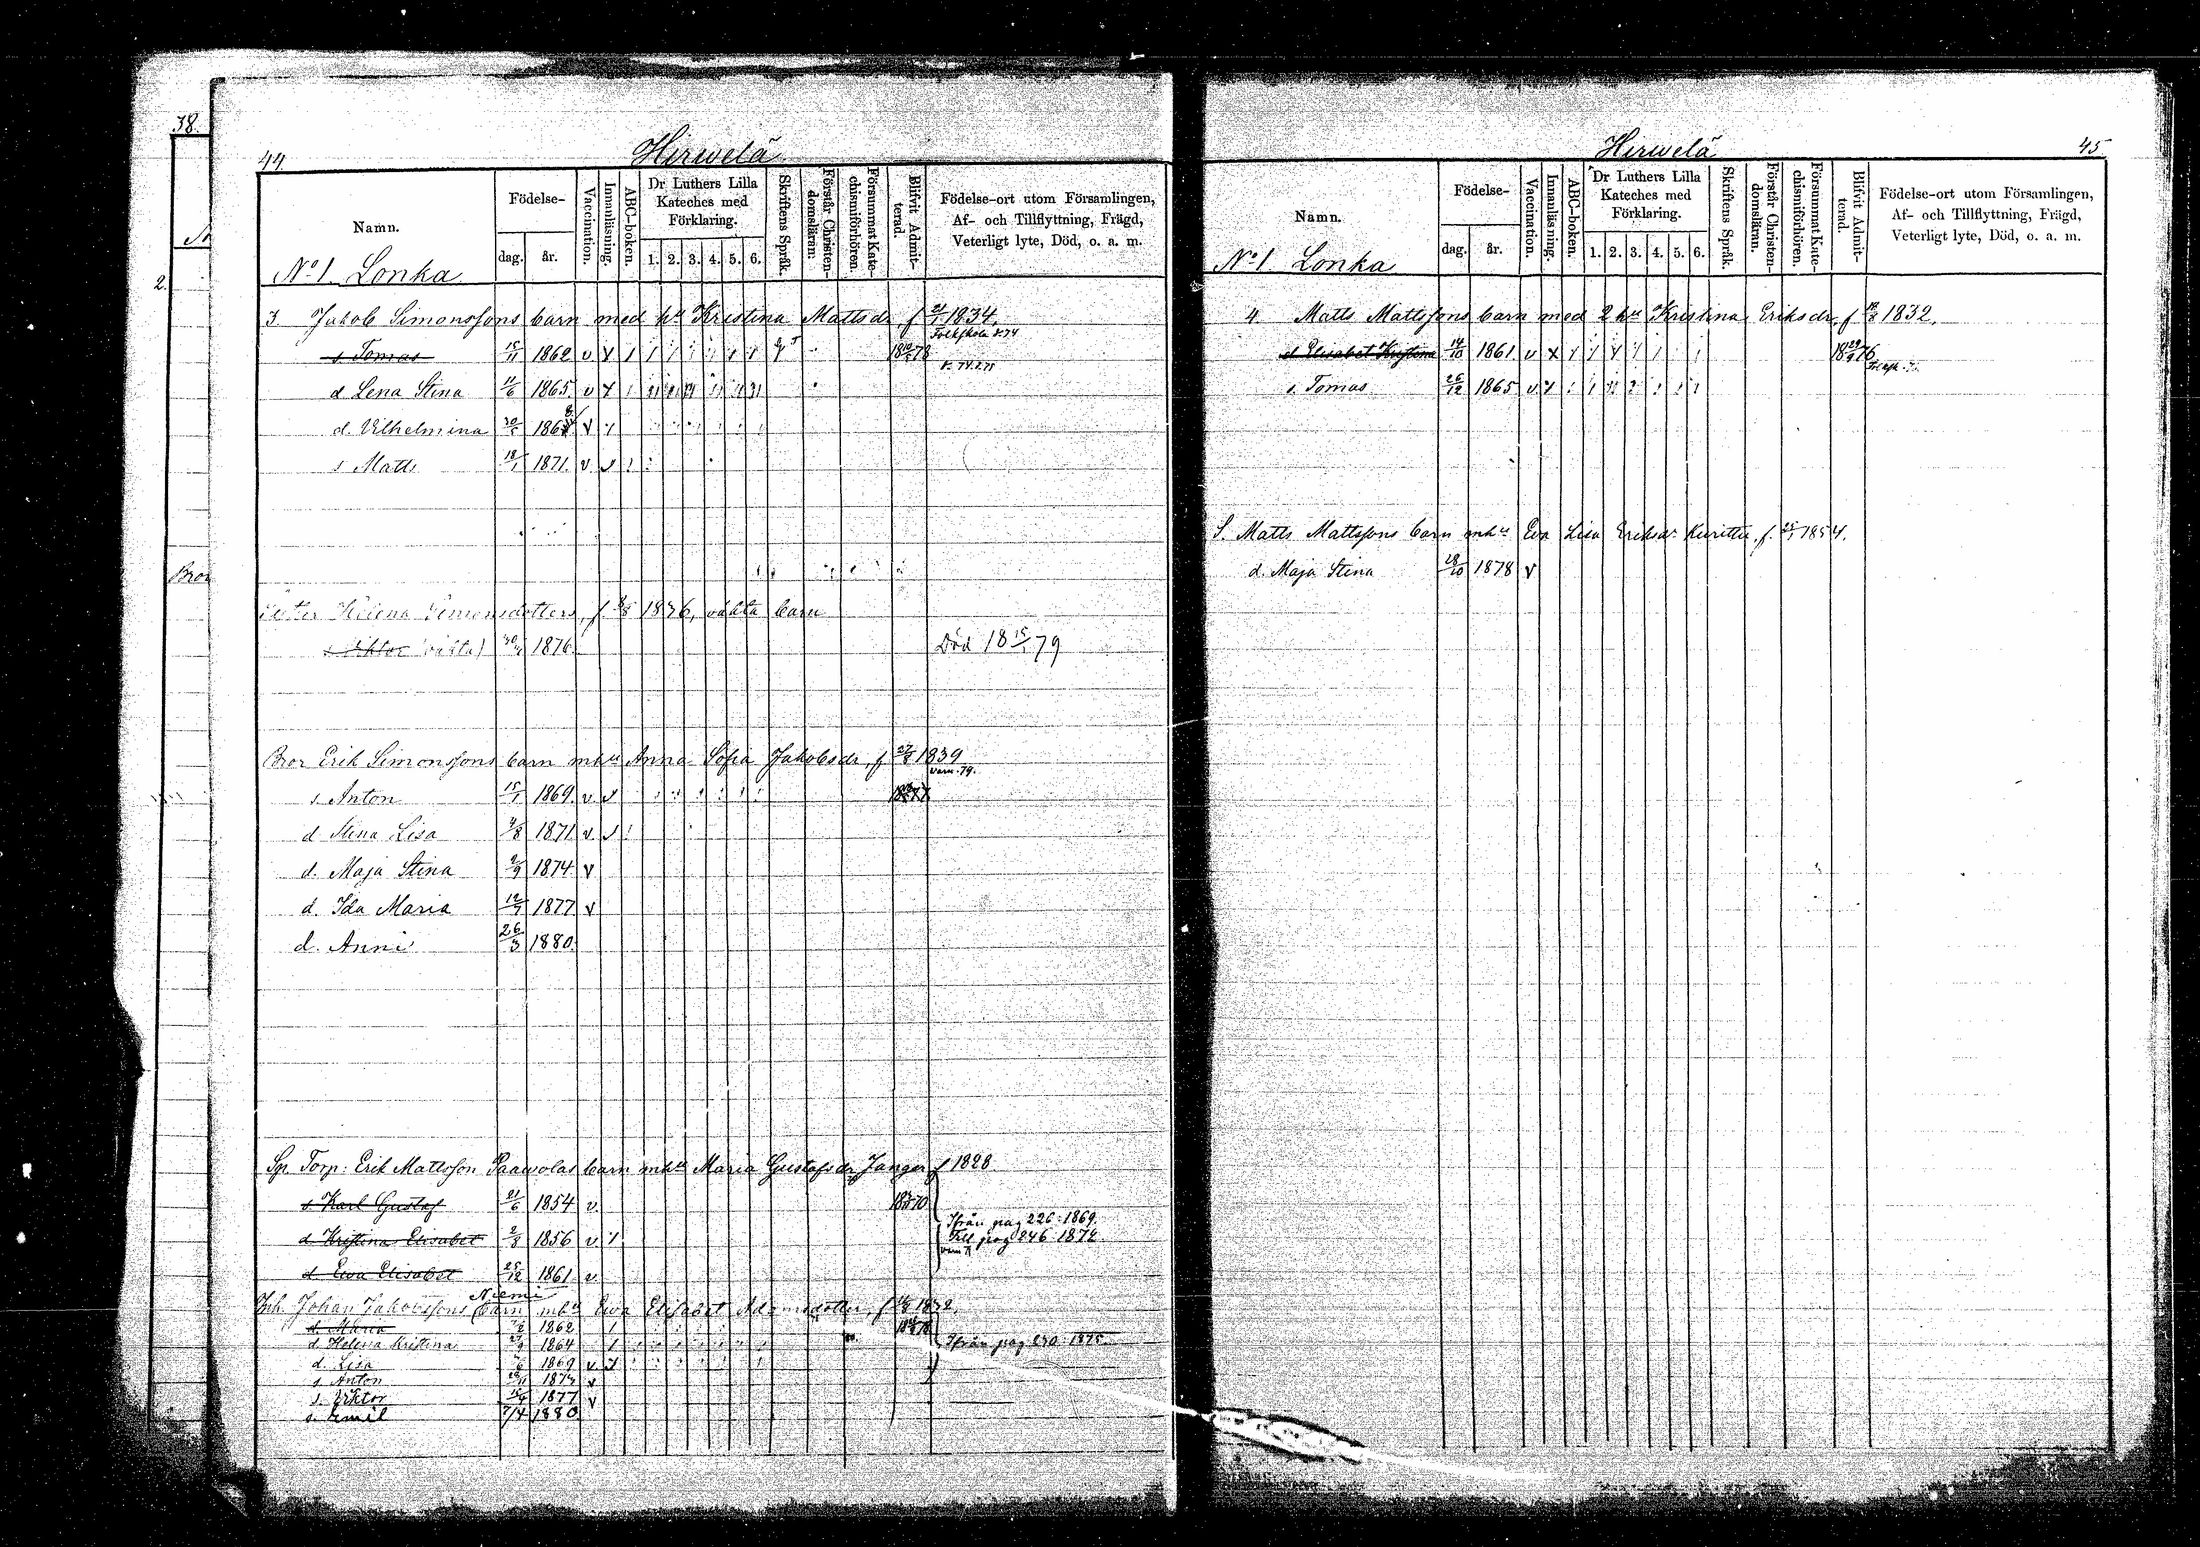 38.
2.
Bror
44.
Hirwelä
Namn.
Födelse-
dag.
år.
Vaccination.
Innanläsning.
ABC-boken.
Dr Luthers Lilla
Kateches med
Förklaring.
1. 2. 3. 4. 5. 6.
Skriftens Språk.
Förstår Christen-
domsläran.
Försummat Kate-
chismiförhören.
Blifvit Admit-
terad.
Födelse-ort utom Församlingen,
Af- och Tillflyttning, Frägd,
Veterligt lyte, Död, o. a. m.
No 1 Lonka
3 Jakob Simonssons barn med hu Kristina Mattsdr f 1834.
s. Tomas 15/11 1862 v
d Lena Stina 1865 v
d. Vilhelmina v
s Matts 18/1 1871. v
Helena Simonsdotters, f. 1836, oäkta barn
s. Viktor (oäkta) 1876 Död 18 15/1 79
Bror Erik Simonssons barn mhu Anna Sofia Jakobsdr, f 27/8 1839
s. Anton 15/1 1869. v
d Stina Lisa 1871 v
d. Maja Stina 1874 v
d. Ida Maria 1877 v
d. Anni 26/3 1880.
Sp. Torp: Erik Mattsson Paawolas barn mhu Maria Gustafsdr Janger f 1828.
s. Karl Gustaf 21/6 1854 v.
Ifrån pag 226: 1869.
d. Kristina Elisabet 2/8 1856 v
Till pag 246 1872
d Ewa Elisabet 25/12 1861 v.
Niemi
Inh. Johan Jakobssons barn mhu Ewa Elisabet Adamsdotter, f
d. Maria 1862
d. Helena Kristina 1864
Ifrån pag 230: 1875
d. Lisa 1869 v
s. Anton v
s. Viktor 1877 v
s. Emil 7/4 1880
Hirwelä
45.
Namn.
Födelse-
dag.
år.
Vaccination.
Innanläsning.
ABC-boken.
Dr Luthers Lilla
Kateches med
Förklaring.
1. 2. 3. 4. 5. 6.
Skriftens Språk.
Förstår Christen-
domsläran.
Försummat Kate-
chismiförhören.
Blifvit Admit-
terad.
Födelse-ort utom Församlingen,
Af- och Tillflyttning, Frägd,
Veterligt lyte, Död, o. a. m.
No 1 Lonka
4 Matts Mattssons barn med 2 hu Kristina Eriksdr, f 1832.
d Elisabet Kristina 14/10 1861 v
s. Tomas 26/12 1865 v
S. Matts Mattssons barn mhu Eva Lisa Eriksdr Kurittu, f. 25/1 1854.
d. Maja Stina 28/10 1878 v